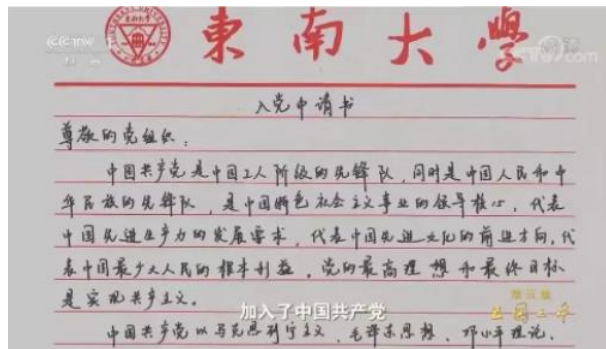 CCTV 1
東南大學
入党申请书
尊敬的党组织：
中国共产党是中国工人阶级的先锋队，同时是中国人民和中
华民族的先锋队，是中国特色社会主义事业的领导核心，代表
中国先进生产力的发展要求，代表中国先进文化的前进方向，代
表中国最广大人民的根本利益。党的最高理想和最终目标
是实现共产主义。
加入了中国共产党
中国共产党以马克思列宁主义、毛泽东思想、邓小平理论、